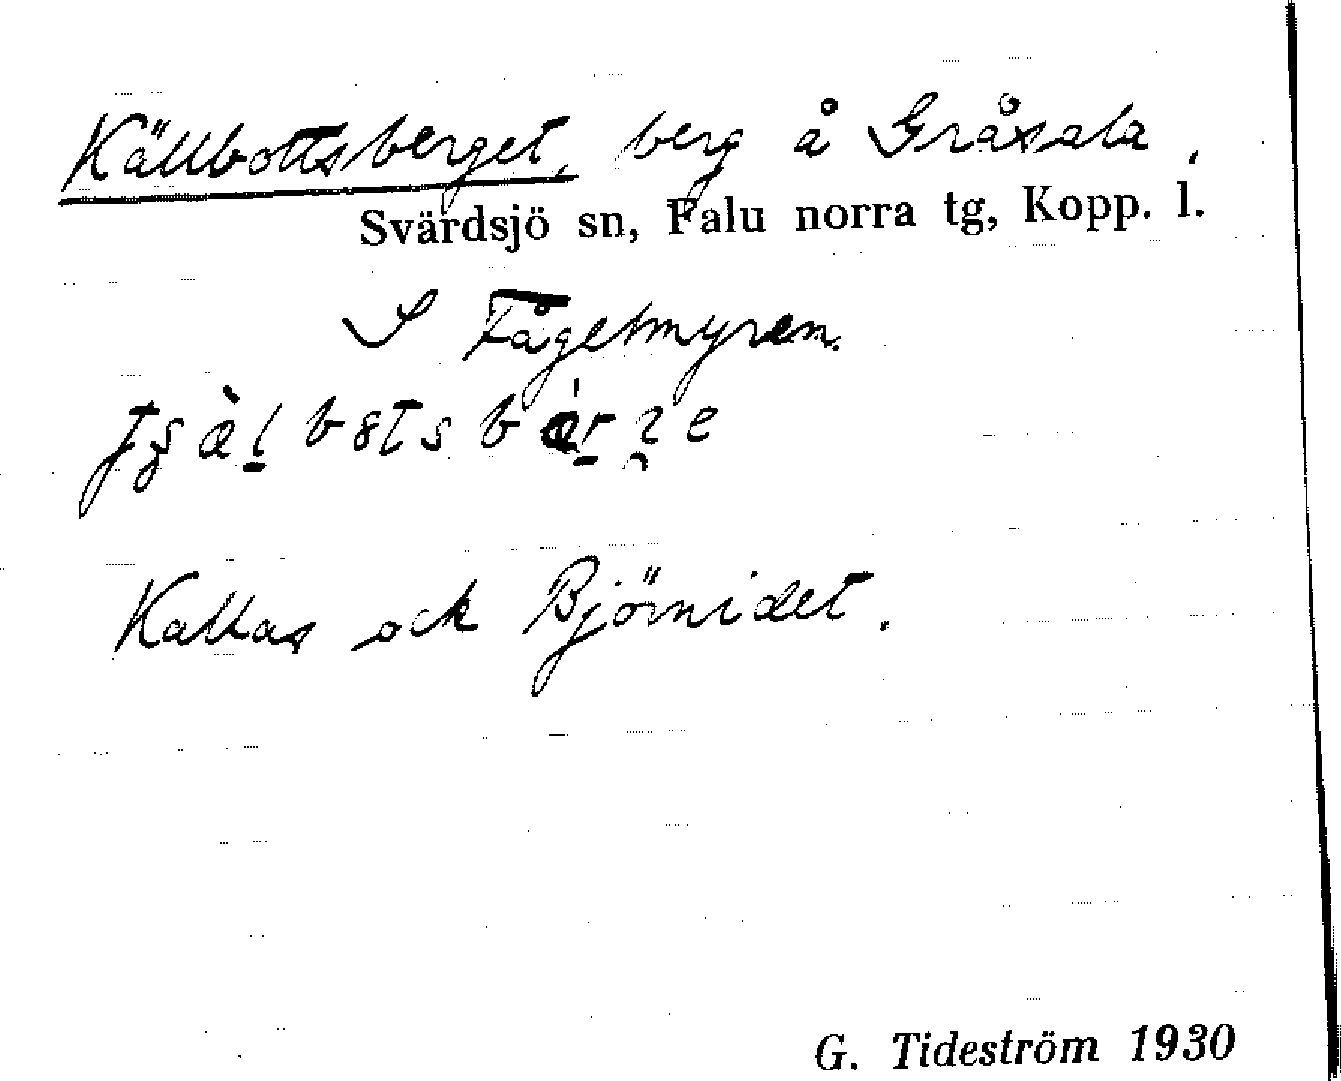 Källbottsberget, berg å Gråsala,
Svärdsjö sn, Falu norra tg, Kopp. l.
S Fågelmyren.
Kallas ock Björnidet.
G. Tideström 1930